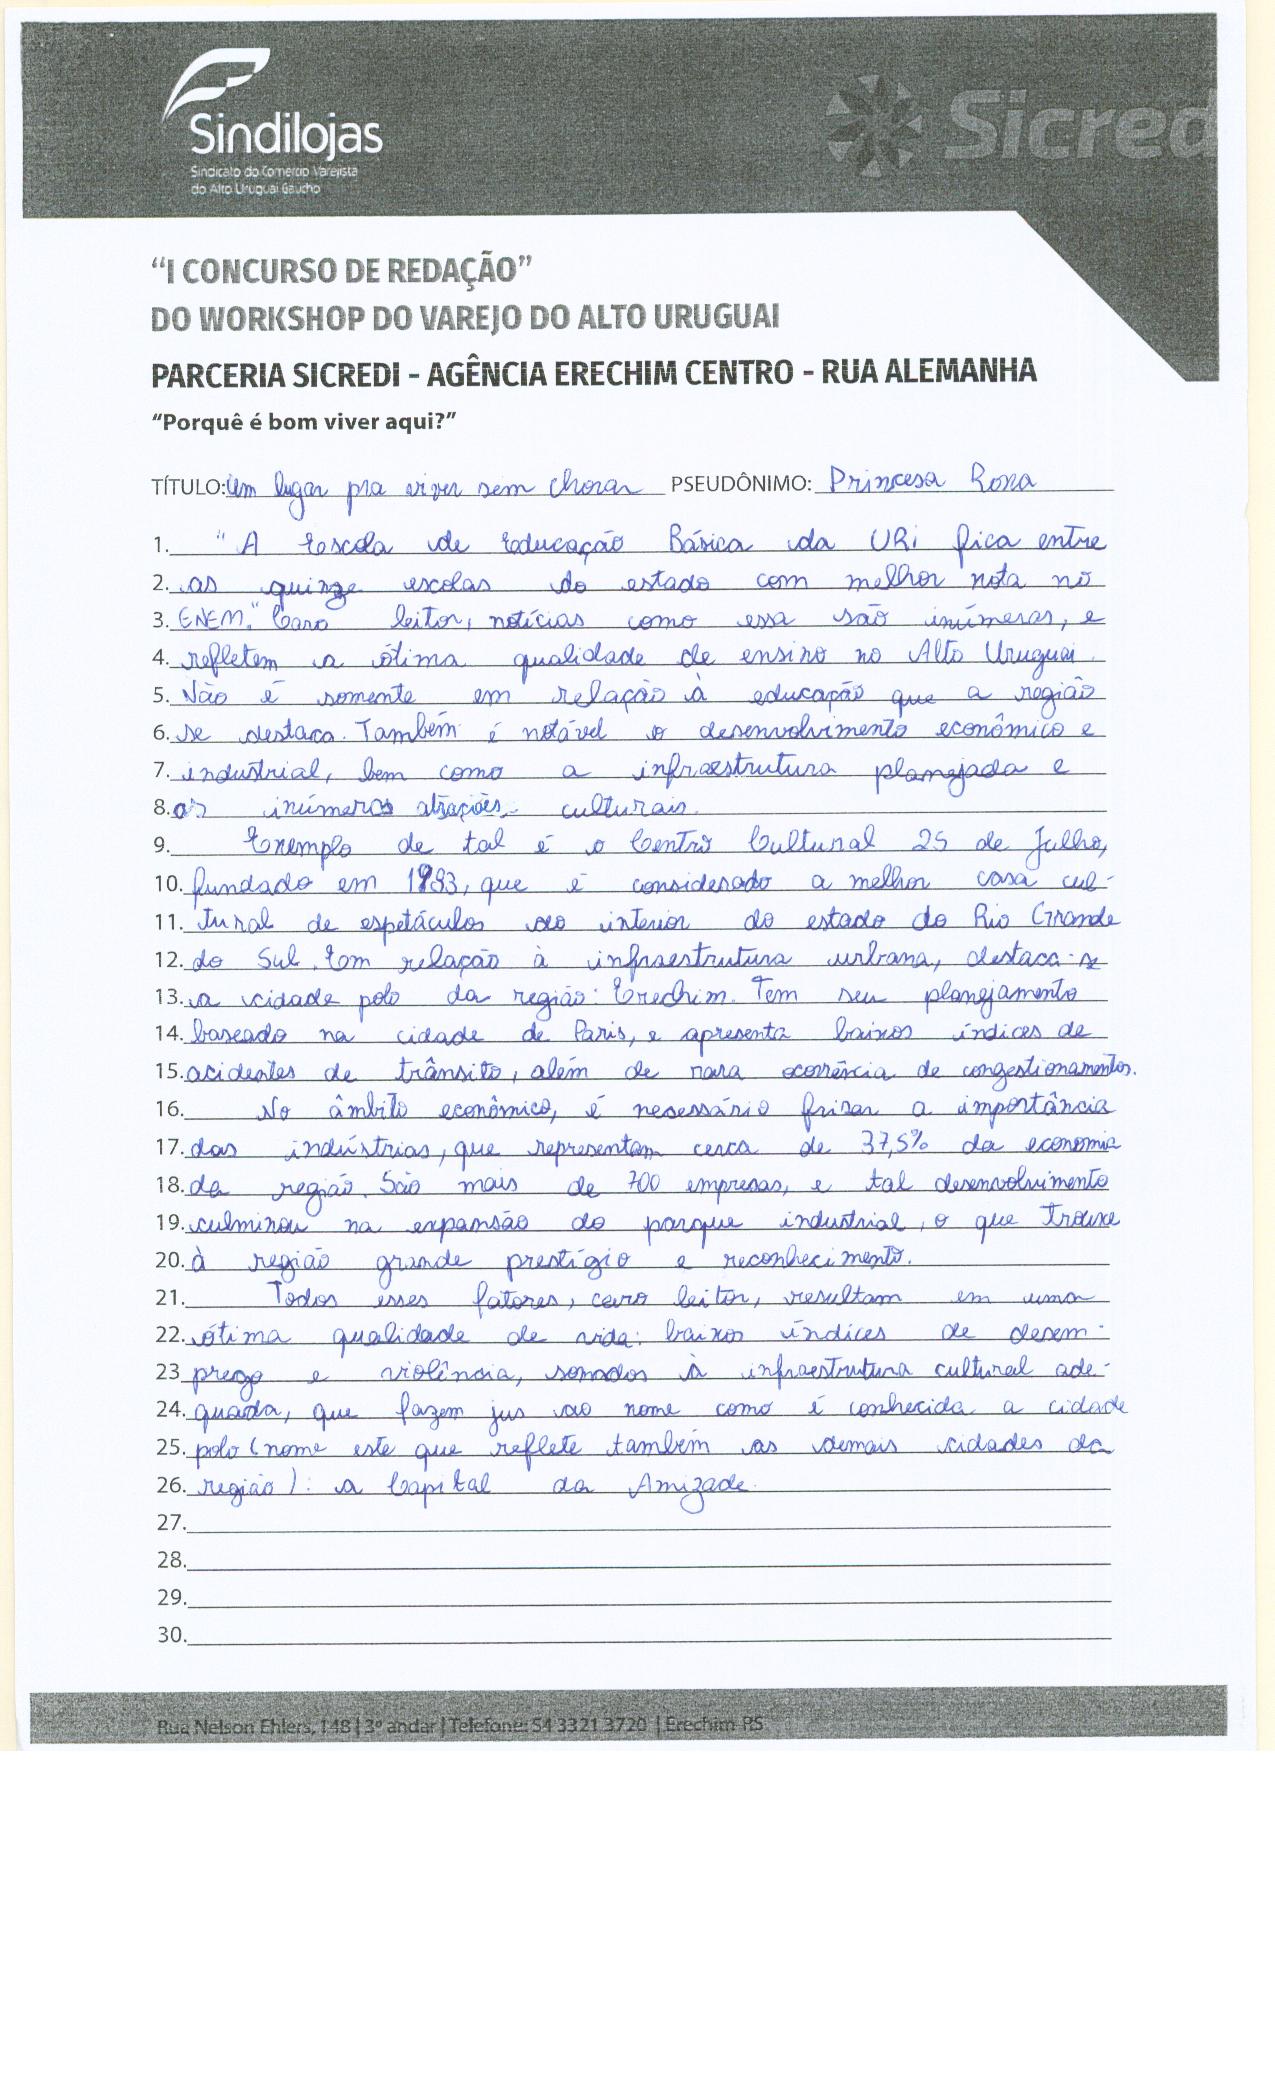 Sindilojas
Sindicato do Comércio Varejista
do Alto Uruguai Gaúcho
Sicred
“I CONCURSO DE REDAÇÃO”
DO WORKSHOP DO VAREJO DO ALTO URUGUAI
PARCERIA SICREDI - AGÊNCIA ERECHIM CENTRO - RUA ALEMANHA
“Porquê é bom viver aqui?”
TÍTULO: Um lugar pra viver sem chorar PSEUDÔNIMO: Princesa Rosa
1. "A Escola de Educação Básica da URI fica entre
2. as quinze escolas do estado com melhor nota no
3. ENEM." Caro leitor, notícias como essa são inúmeras, e
4. refletem a ótima qualidade de ensino no Alto Uruguai.
5. Não é somente em relação à educação que a região
6. se destaca. Também é notável o desenvolvimento econômico e
7. industrial, bem como a infraestrutura planejada e
8. as inúmeras atrações culturais.
9. Exemplo de tal é o Centro Cultural 25 de Julho,
10. fundado em 1993, que é considerado a melhor casa cul-
11. tural de espetáculos do interior do estado do Rio Grande
12. do Sul. Em relação à infraestrutura urbana, destaca-se
13. a cidade polo da região: Erechim. Tem seu planejamento
14. baseado na cidade de Paris, e apresenta baixos índices de
15. acidentes de trânsito, além de rara ocorrência de congestionamentos.
16. No âmbito econômico, é necessário frisar a importância
17. das indústrias, que representam cerca de 37,5% da economia
18. da região. São mais de 700 empresas, e tal desenvolvimento
19. culminou na expansão do parque industrial, o que trouxe
20. à região grande prestígio e reconhecimento.
21. Todos esses fatores, caro leitor, resultam em uma
22. ótima qualidade de vida: baixos índices de desem-
23 prego e violência, somados à infraestrutura cultural ade-
24. quada, que fazem jus ao nome como é conhecida a cidade
25. polo (nome este que reflete também as demais cidades da
26. região): a Capital da Amizade.
27.
28.
29.
30.
Rua Nelson Ehlers, 148 | 3º andar | Telefone: 54 3321 3720 | Erechim-RS